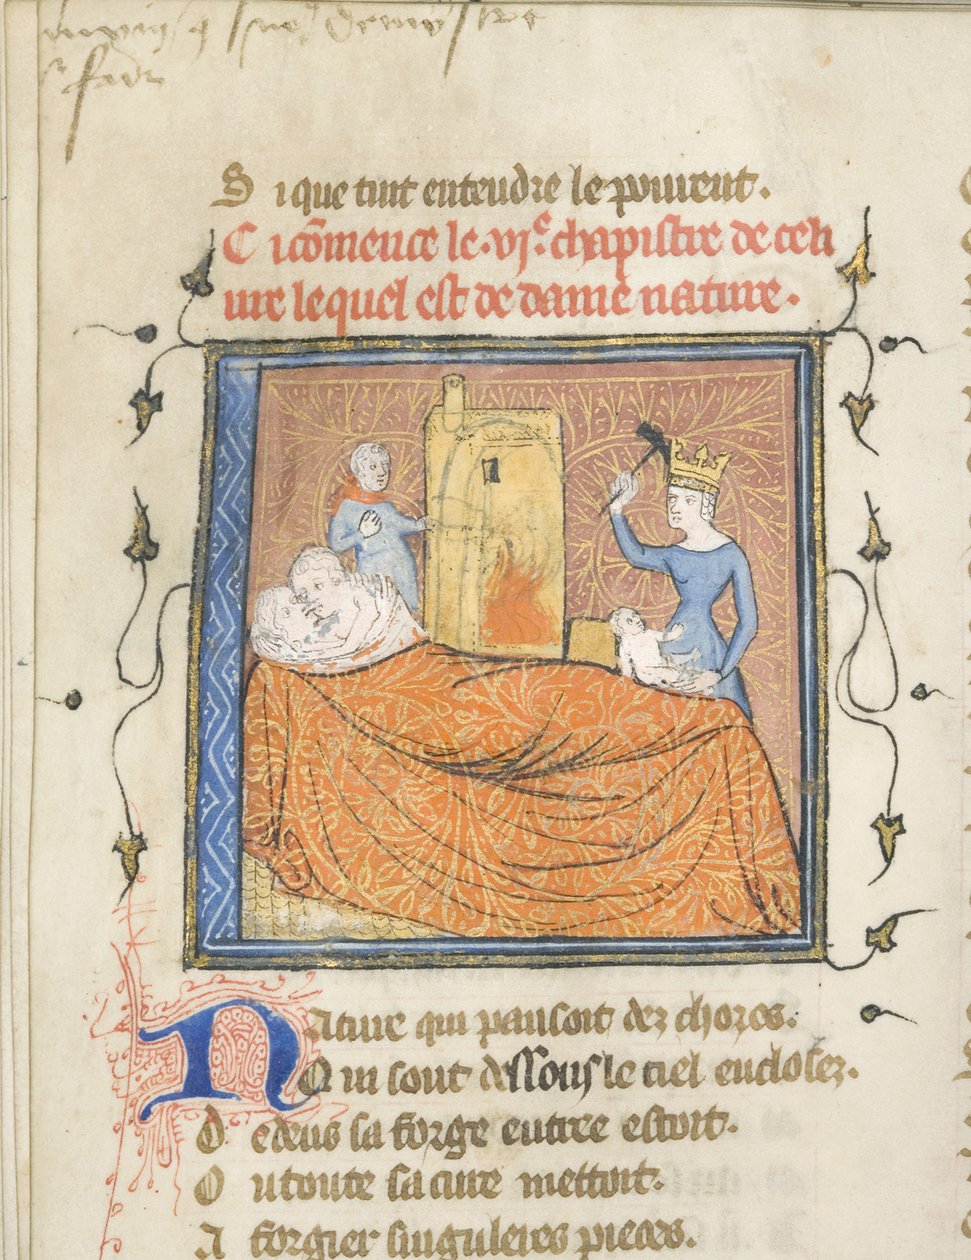 S i que tuit entendre le peuvent.
C i cõmence le .vjᵉ. chapistre de ce li
ure le quel est de dame nature.
Nature qui pansoit dez chozes.
Q ui sont dessouz le ciel enclosez.
D edens sa forge entree estoit.
O u toute sa cure mettoit.
A forgier singuleres pieces.